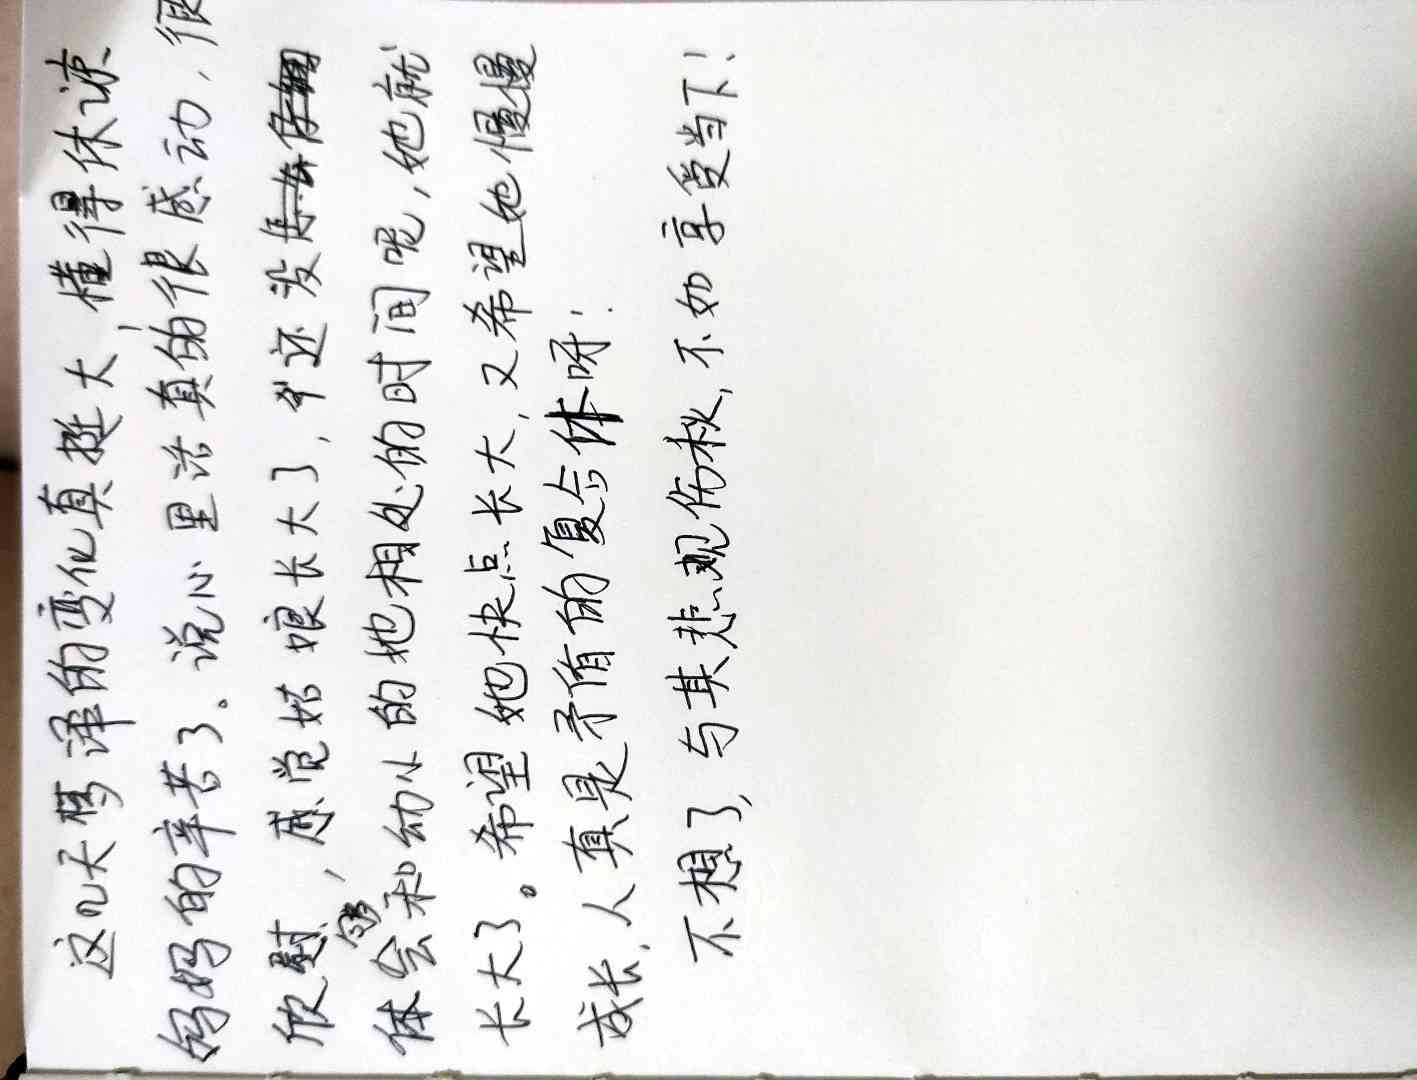 这几天梦译的变化真挺大,懂得体谅
妈妈的辛苦了。说心里话真的很感动,很
欣慰,感觉姑娘长大了,还没
体会够和幼小的她相处的时间呢,她就
长大了。希望她快点长大,又希望她慢慢
成长,人真是矛盾的复合体呀!
不想了,与其悲观伤秋,不如享受当下!